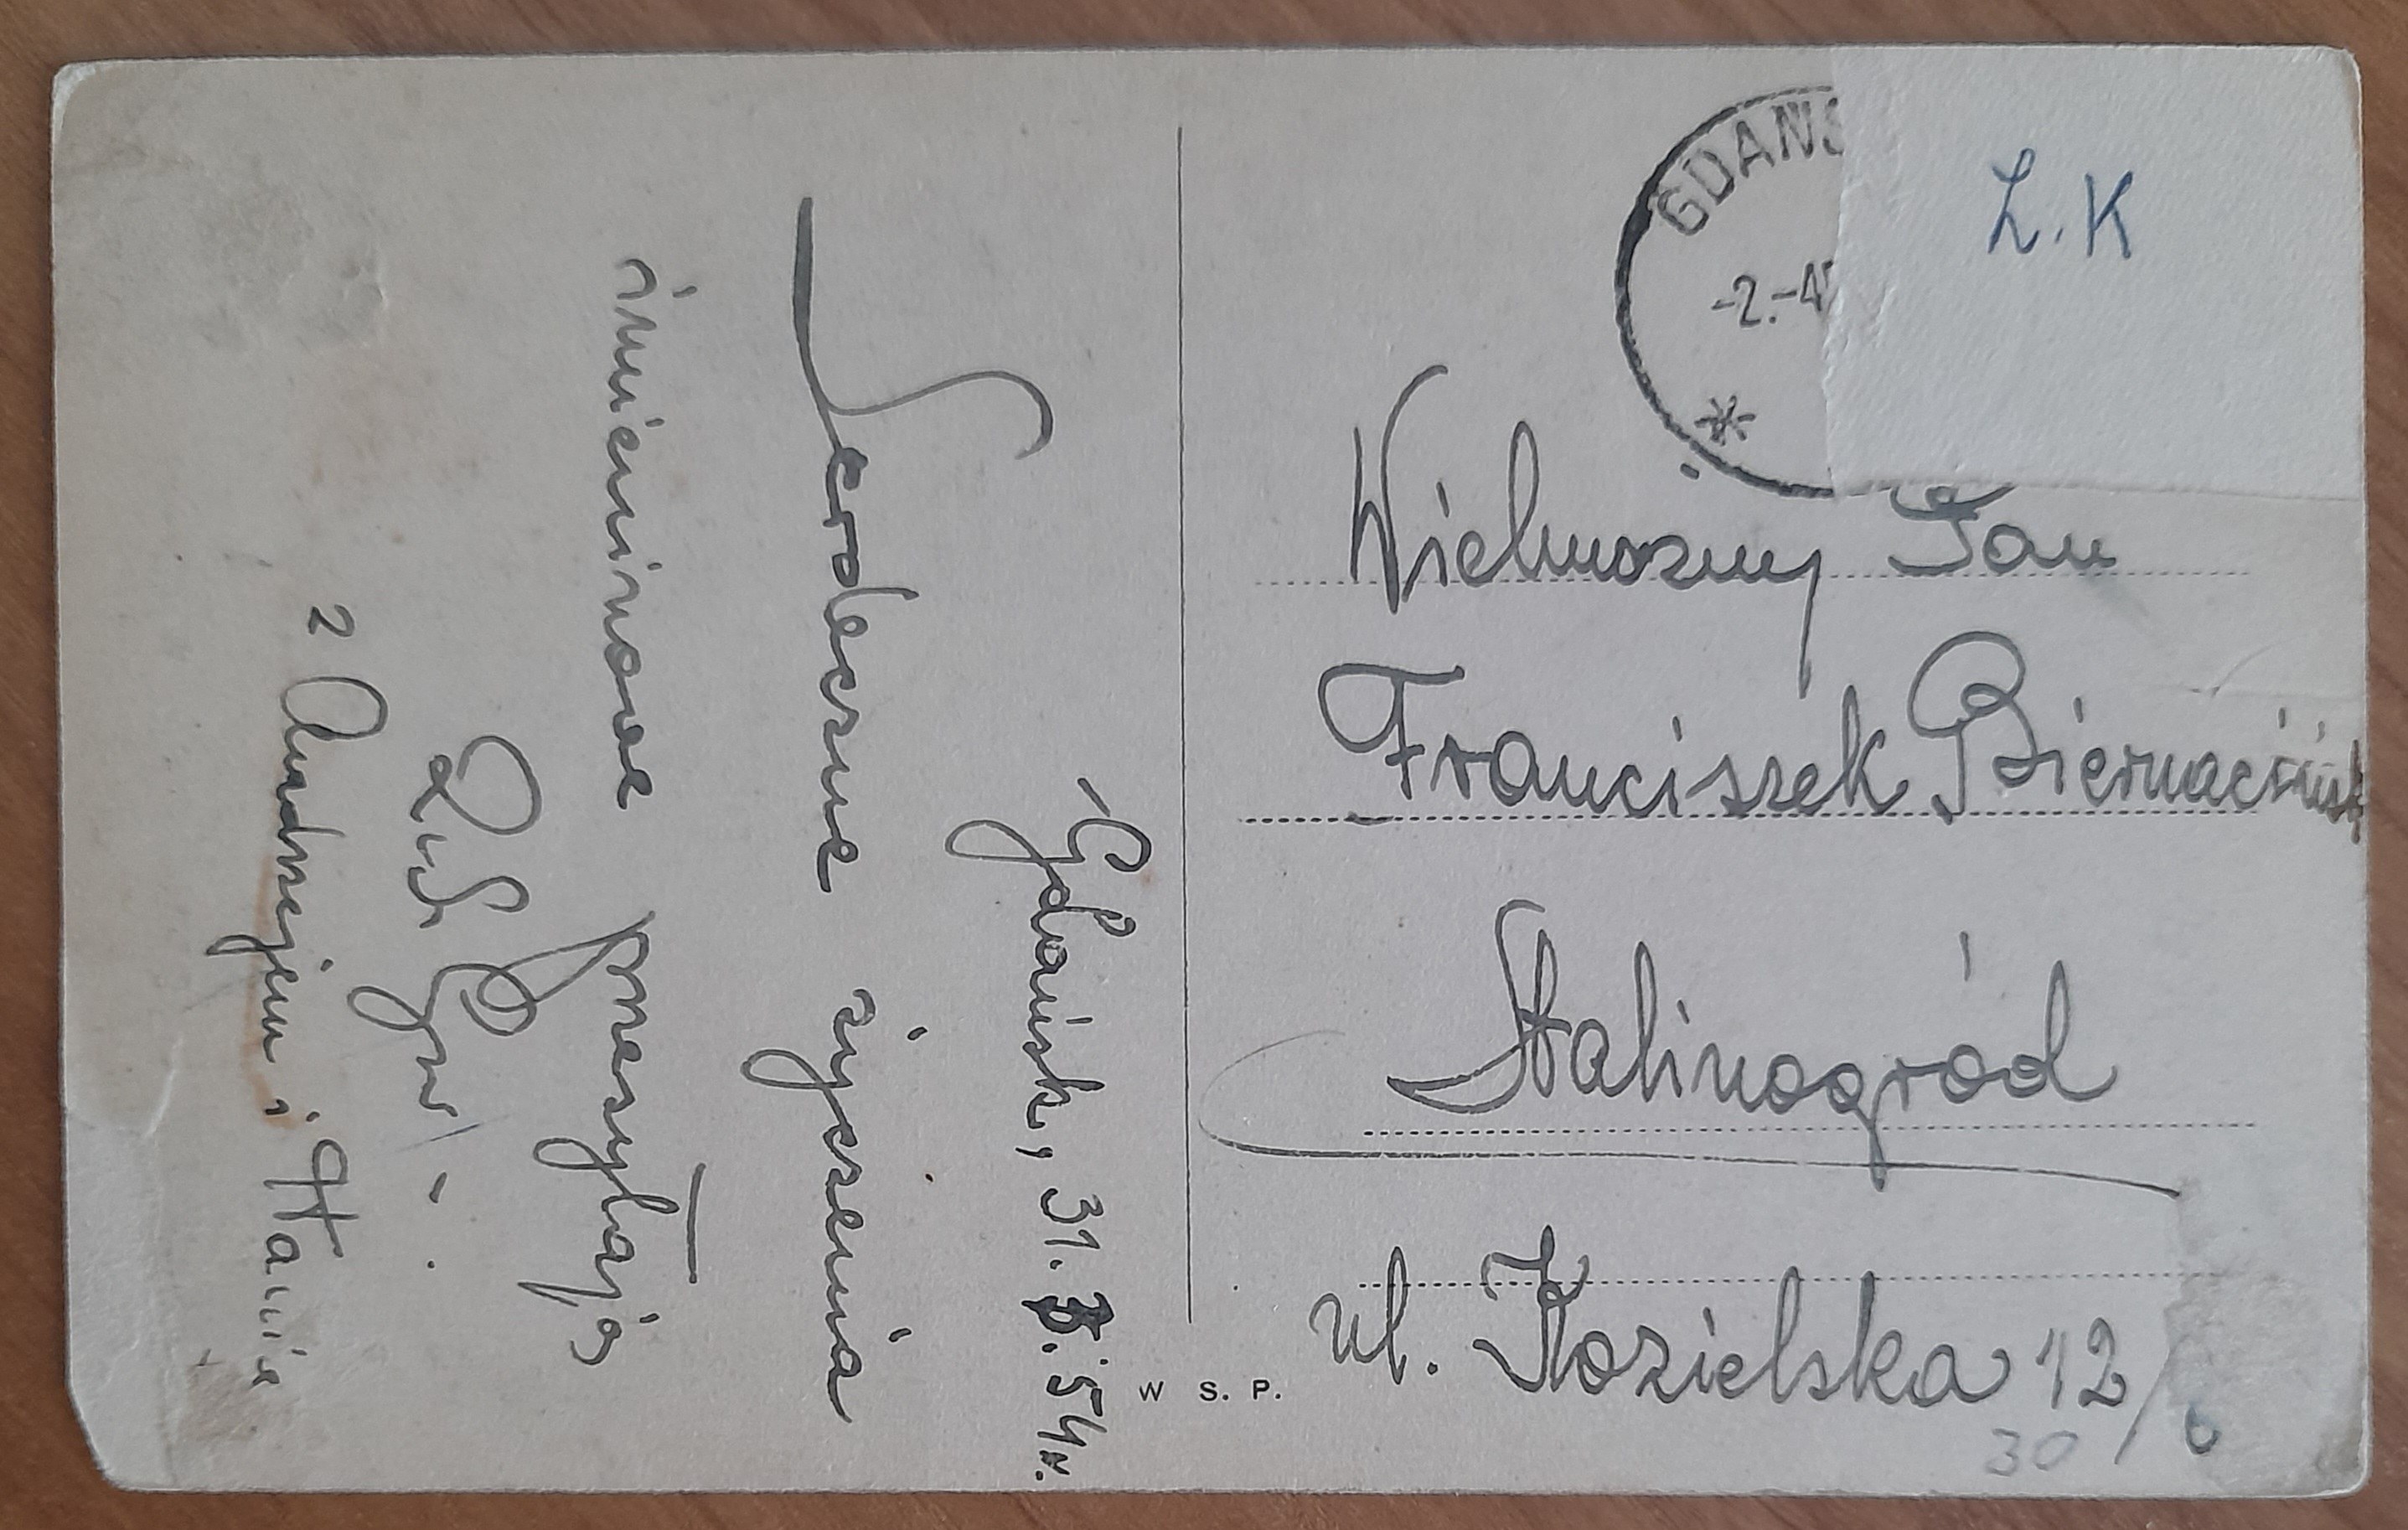 Gdańsk, 31. 3. 54 r.
Serdeczne życzenia
imieninowe przesyłają
z Andrzejem i Hanią
GDAŃS
-2.-4
Ł.K
Wielmożny Pan
Franciszek Biernaciński
Stalinogród
ul. Kozielska 12/6
30
W S. P.